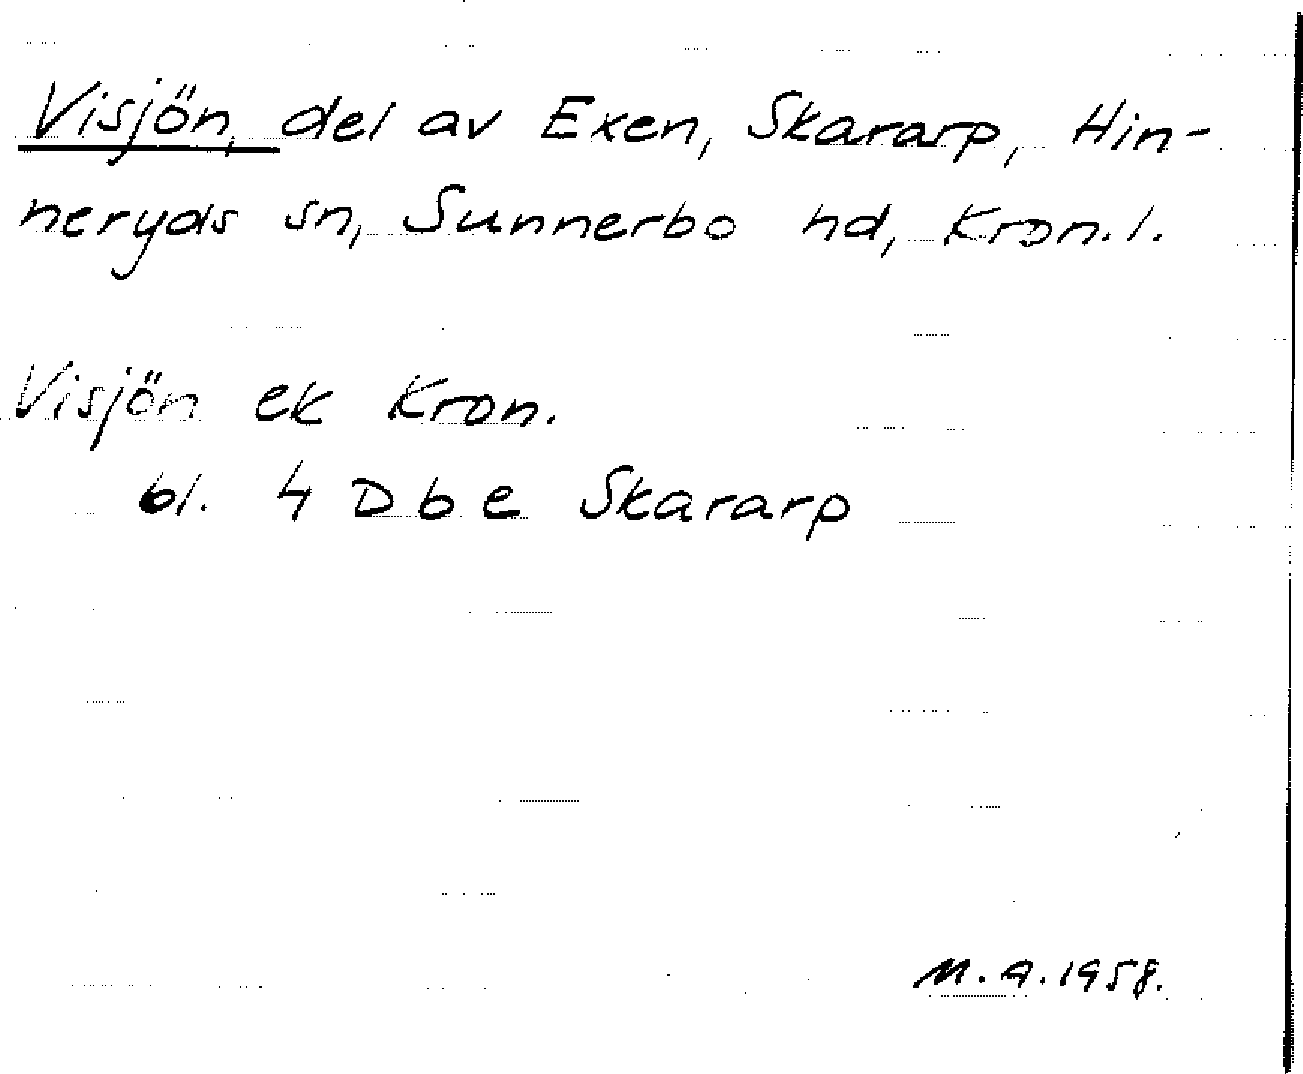 Visjön, del av Exen, Skararp, Hin-
neryds sn, Sunnerbo hd, Kron.l.
Visjön ek Kron.
bl. 4 D b e Skararp
M.A.1958.